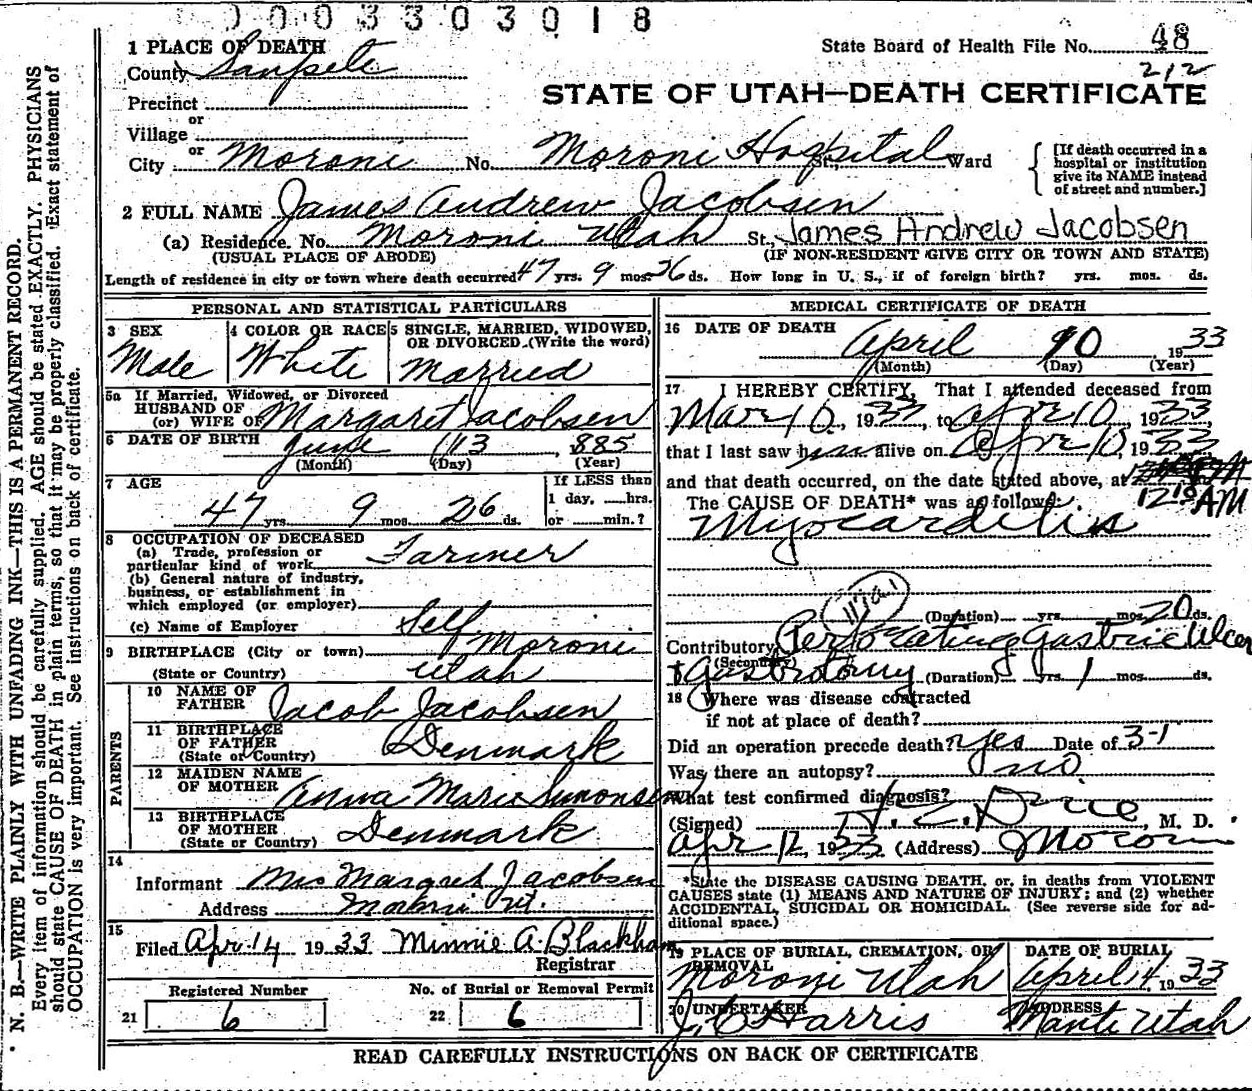 0003303018
1 PLACE OF DEATH
State Board of Health File No. 48
212
County Sanpete
STATE OF UTAH—DEATH CERTIFICATE
Precinct
or
Village
or
City Moroni No. Moroni Hospital St., Ward
[If death occurred in a
hospital or institution
give its NAME instead
of street and number.]
2 FULL NAME James Andrew Jacobsen
(a) Residence. No. Moroni Utah St. James Andrew Jacobsen
(USUAL PLACE OF ABODE) (IF NON-RESIDENT GIVE CITY OR TOWN AND STATE)
Length of residence in city or town where death occurred 47 yrs. 9 mos. 26 ds. How long in U. S., if of foreign birth? yrs. mos. ds.
PERSONAL AND STATISTICAL PARTICULARS
3 SEX
Male
4 COLOR OR RACE
White
5 SINGLE, MARRIED, WIDOWED,
OR DIVORCED. (Write the word)
Married
5a If Married, Widowed, or Divorced
HUSBAND OF
(or) WIFE OF Margaret Jacobsen
6 DATE OF BIRTH June 13, 1885
(Month) (Day) (Year)
7 AGE
47 yrs. 9 mos. 26 ds.
If LESS than
1 day, ......hrs.
or ......min.?
8 OCCUPATION OF DECEASED
(a) Trade, profession or
particular kind of work Farmer
(b) General nature of industry,
business, or establishment in
which employed (or employer)
(c) Name of Employer Self
9 BIRTHPLACE (City or town) Moroni
(State or Country) Utah
PARENTS
10 NAME OF
FATHER Jacob Jacobsen
11 BIRTHPLACE
OF FATHER
(State or Country) Denmark
12 MAIDEN NAME
OF MOTHER Anna Marie Simonsen
13 BIRTHPLACE
OF MOTHER
(State or Country) Denmark
14
Informant Mrs Margret Jacobsen
Address Moroni Ut.
15
Filed Apr. 14 1933 Minnie A. Blackham
Registrar
Registered Number No. of Burial or Removal Permit
21 6 22 6
MEDICAL CERTIFICATE OF DEATH
16 DATE OF DEATH
April 10 1933
(Month) (Day) (Year)
17 I HEREBY CERTIFY, That I attended deceased from
Mar 10, 1933, to Apr 10, 1933
that I last saw him alive on Apr 10, 1933
and that death occurred, on the date stated above, at
12 10 AM
The CAUSE OF DEATH* was as follows:
Myocarditis
117a.1
(Duration) yrs. mos. 20 ds.
Contributory Perforating Gastric Ulcer
(Secondary)
Gastrotomy (Duration) yrs. 1 mos. ds.
18 Where was disease contracted
if not at place of death?
Did an operation precede death? Yes Date of 3-1
Was there an autopsy? no
What test confirmed diagnosis?
(Signed) M. D.
Apr 12, 1933 (Address) Moroni
*State the DISEASE CAUSING DEATH, or, in deaths from VIOLENT
CAUSES state (1) MEANS AND NATURE OF INJURY; and (2) whether
ACCIDENTAL, SUICIDAL OR HOMICIDAL. (See reverse side for ad-
ditional space.)
19 PLACE OF BURIAL, CREMATION, OR
REMOVAL
Moroni Utah
DATE OF BURIAL
April 14, 1933
20 UNDERTAKER
Harris
ADDRESS
Manti Utah
READ CAREFULLY INSTRUCTIONS ON BACK OF CERTIFICATE
N. B.—WRITE PLAINLY WITH UNFADING INK—THIS IS A PERMANENT RECORD.
Every item of information should be carefully supplied. AGE should be stated EXACTLY. PHYSICIANS
should state CAUSE OF DEATH in plain terms, so that it may be properly classified. Exact statement of
OCCUPATION is very important. See instructions on back of certificate.